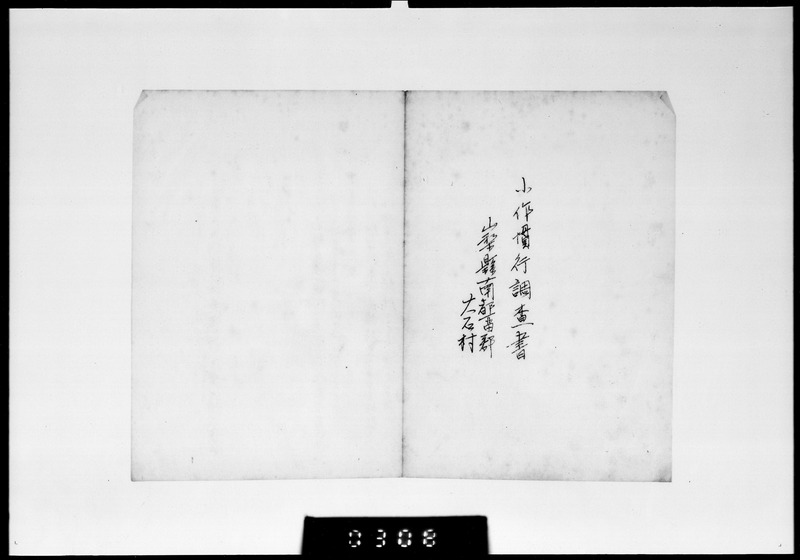 小作慣行調査書
山梨縣南都留郡
大石村
0308